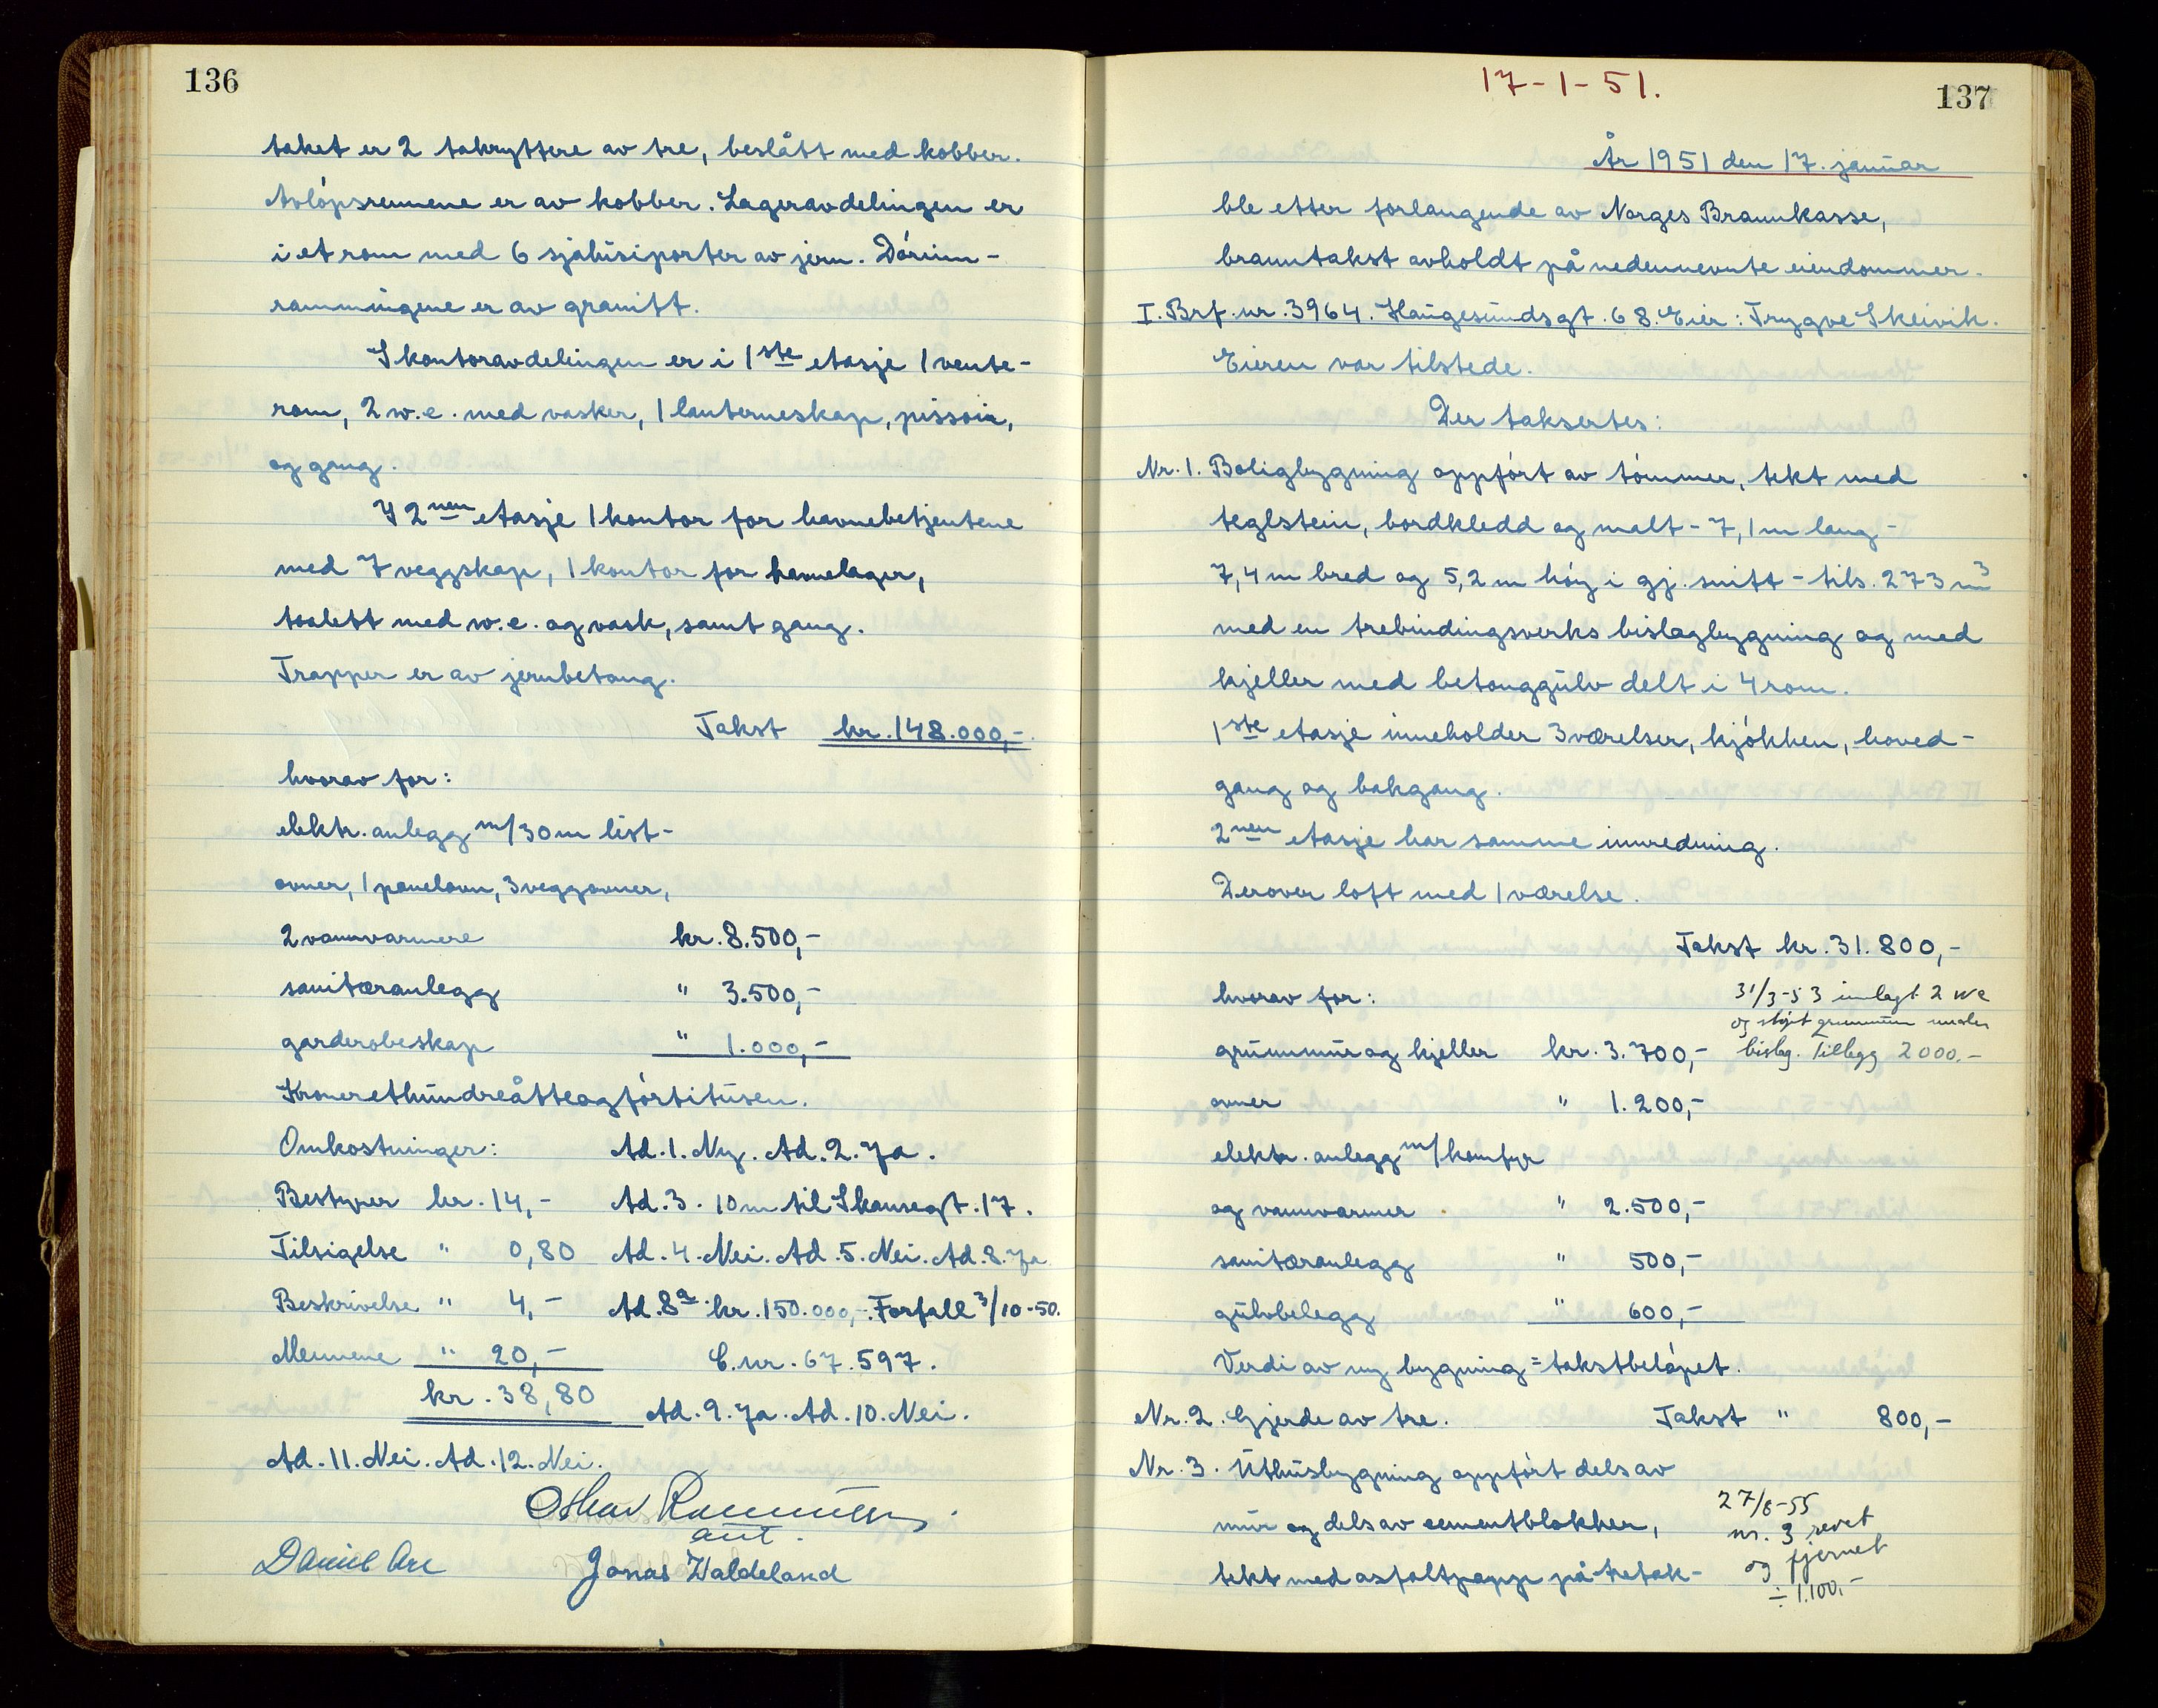 136
taket er 2 takryttere av tre, beslått med kobber.
Avløpsrennene er av kobber. Lageravdelingen er
i et rom med 6 sjalusiporter av jern. Dørinn-
rammingene er av granitt.
I kontoravdelingen er i 1ste etasje 1 vente-
rom, 2 w.c. med vasker, 1 lanterneskap, pissoir,
og gang.
I 2nen etasje 1 kontor for havnebetjentene
med 7 veggskap, 1 kontor for havnelager,
toalett med w.c. og vask, samt gang.
Trapper er av jernbetong.
Takst kr. 148.000,-
hvorav for:
elektr. anlegg m/30 m list-
ovner, 1 panelovn, 3 veggovner,
2 vannvarmere kr. 8.500,-
sanitæranlegg " 3.500,-
garderobeskap " 1.000,-
Kroneretthundreåtteogførtitusen.
Omkostninger: Ad. 1. Ny. Ad. 2. Ja.
Bestyrer kr. 14,- Ad. 3. 10 m til Skansegt. 17.
Tilsigelse " 0,80 Ad. 4. Nei. Ad. 5. Nei. Ad. 8. Ja
Beskrivelse " 4,- Ad. 8a. kr. 150.000,-. Forfall 3/10-50.
Mennene " 20,- C. nr. 67.597.
kr. 38,80 Ad. 9. Ja. Ad. 10. Nei.
Ad. 11. Nei. Ad. 12. Nei.
ant.
Daniel Jonas Waldeland
17-1-51.
137
År 1951 den 17. januar
ble etter forlangende av Norges Brannkasse,
branntakst avholdt på nedennevnte eiendommer.
I. Brf. nr. 3964. Haugesundsgt. 68. Eier: Trygve Skeivik.
Eieren var tilstede.
Der taksertes:
Nr. 1. Boligbygning oppført av tømmer, tekt med
teglstein, bordkledd og malt - 7,1 m lang -
7,4 m bred og 5,2 m høy i gj. snitt - tils. 273 m3
med en trebindingsverks bislagbygning og med
kjeller med betonggulv delt i 4 rom.
1ste etasje inneholder 3 værelser, kjøkken, hoved-
gang og bakgang.
2nen etasje har samme innredning.
Derover loft med 1 værelse.
Takst kr. 31.800,-
hvorav for: 31/3-53 innlagt 2 wc
og støpt grunnmur under
grunnmur og kjeller kr. 3.700,- bislag. Tillegg 2000.-
ovner " 1.200,-
elektr. anlegg m/komfyr
og vannvarmer " 2.500,-
sanitæranlegg " 500,-
gulvbelegg " 600,-
Verdi av ny bygning = takstbeløpet.
Nr. 2. Gjerde av tre. Takst " 800,-
Nr. 3. Uthusbygning oppført dels av
mur og dels av cementblokker,
tekt med asfaltpapp på tretak-
27/8-55
nr. 3 revet
og fjernet
÷ 1.100,-